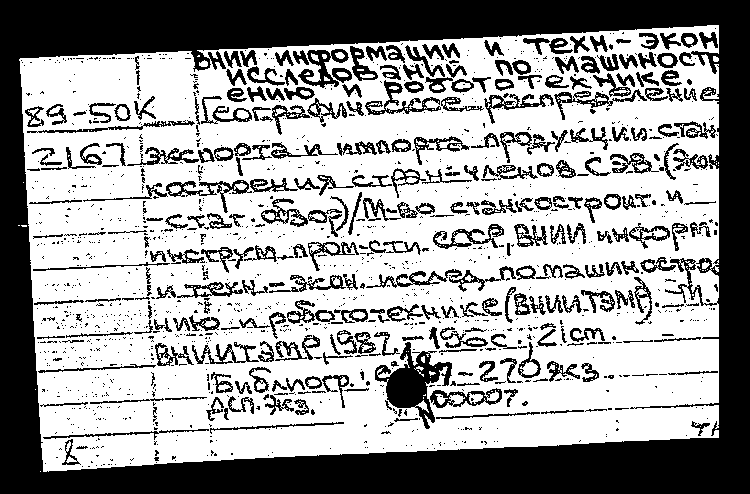 ВНИИ информации и техн.- экон
исследований по машиностр
ению и робототехнике.
89-50К Географическое распределение
2167 экспорта и импорта продукции стан-
костроения стран-членов СЭВ: (Экон
-стат. обзор) / М-во станкостроит. и
инструм. пром-сти СССР, ВНИИ информ.
и техн.- экон. исслед. по машиностро
нию и робототехнике (ВНИИТЭМР). - М
ВНИИТЭМР, 1987. - 196с.; 21см.
Библиогр.: с. - 270 экз.
ДСП. Экз. N 00007.